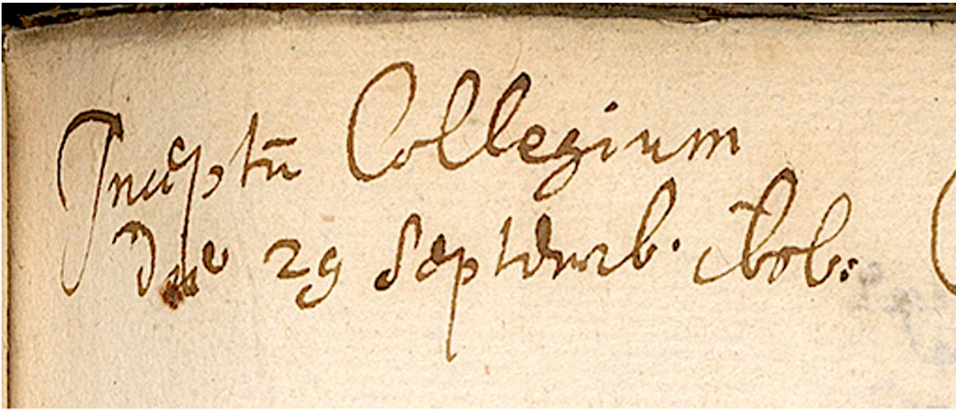 Inceptū Collegium
Die 29 Septemb.